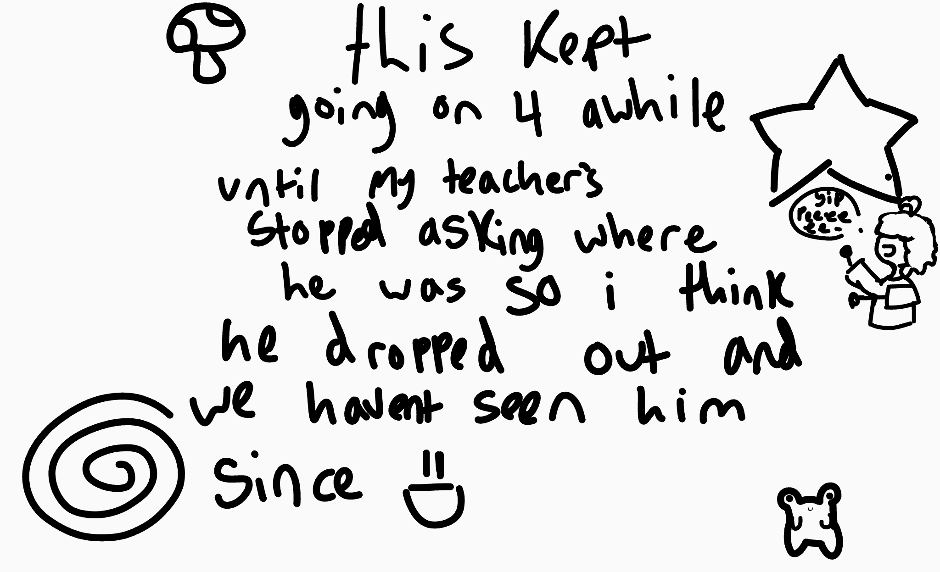 this kept
going on 4 awhile
until my teacher's
stopped asking where
he was so i think
he dropped out and
we havent seen him
since
yip
peeee
ee-